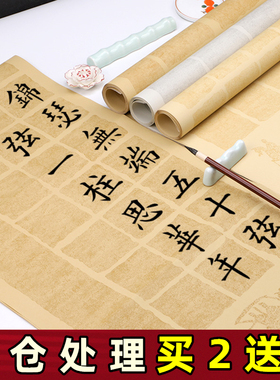 錦瑟無端五十弦
弦一柱思華年
仓处理买2送